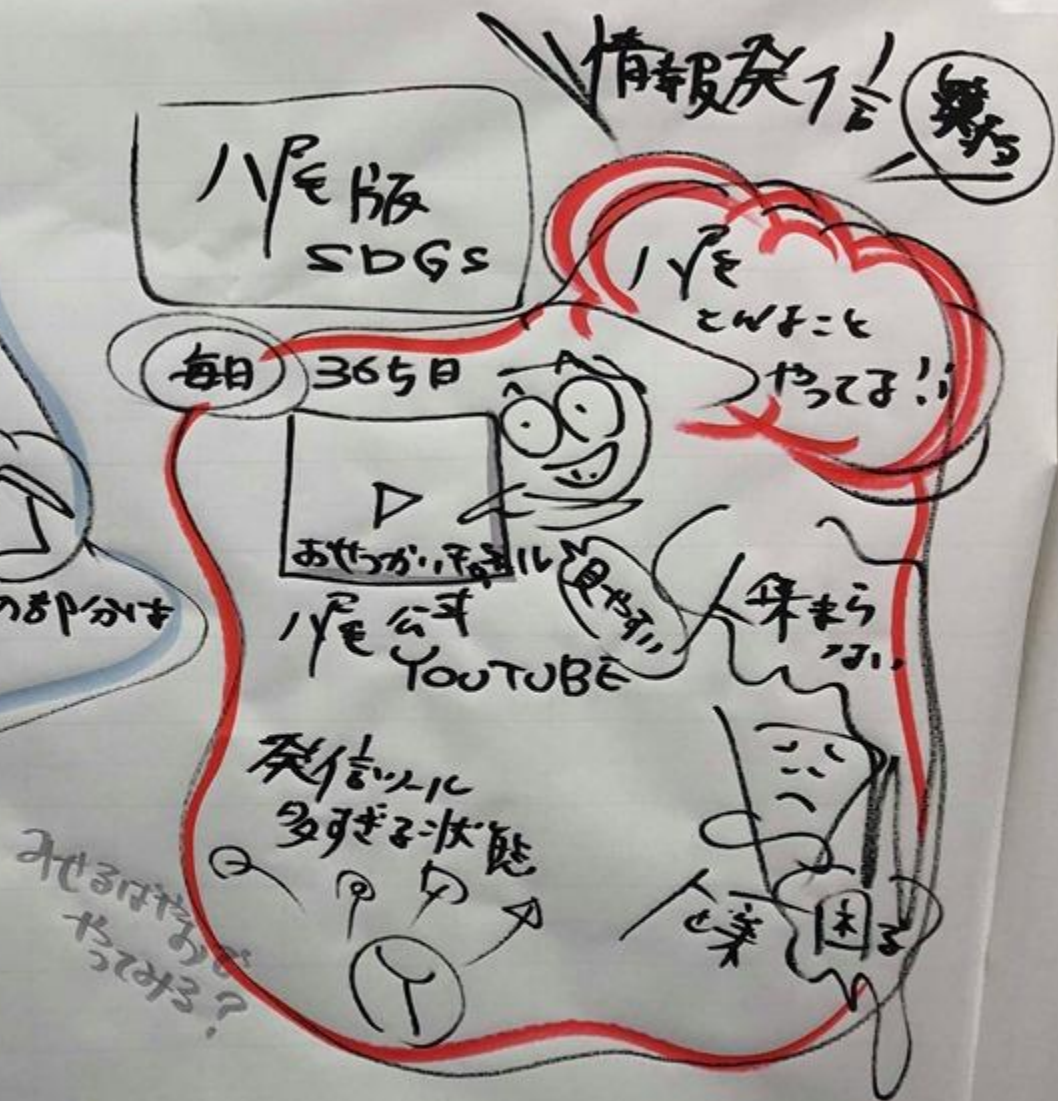 情報発信
八尾版
SDGs
八尾
こんなこと
やってるよ!!
毎日 365日
おせっかいチャンネル
見やすい
八尾公式
YOUTUBE
集まら
ない
発信ツール
多すぎる状態
企業 困る
みせるばやおで
やってみる?
の部分は